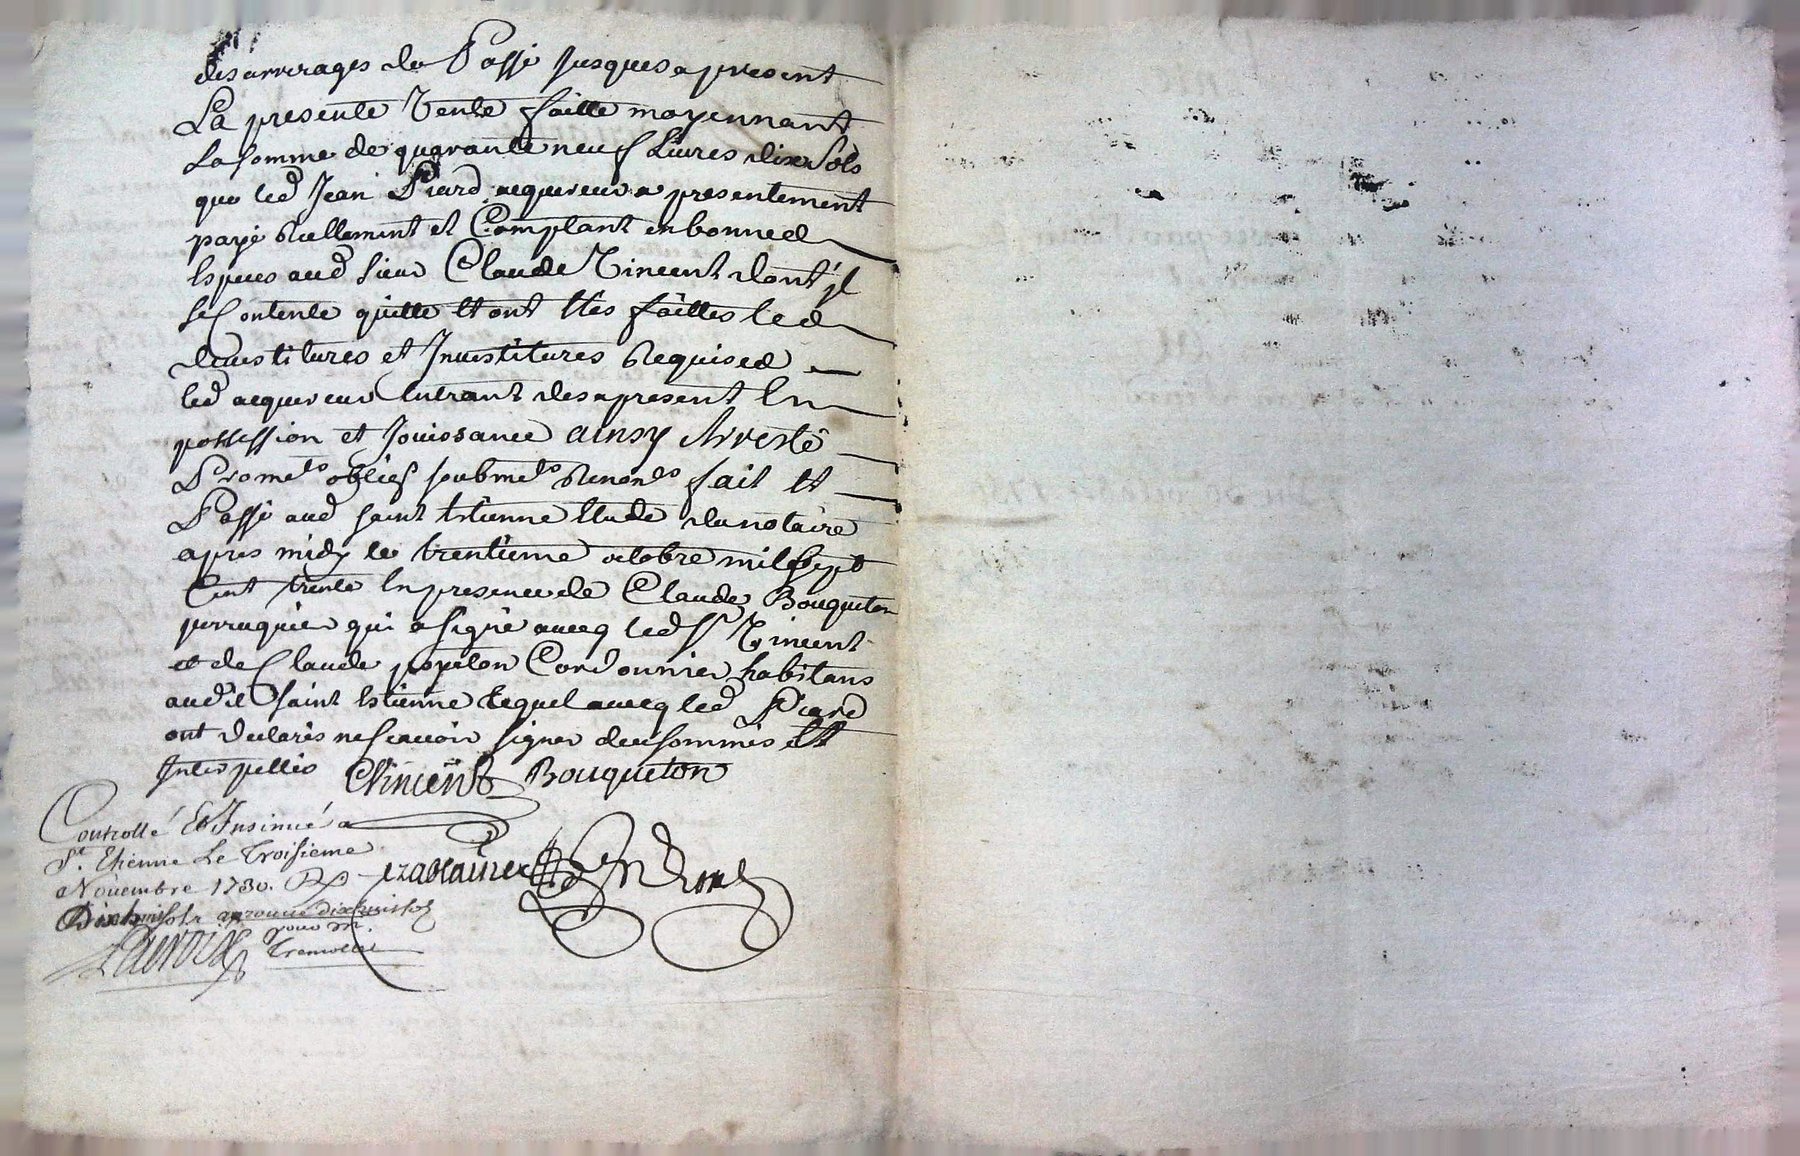 des arrerages du Passé jusques a present
La presente Vente faitte moyennant
La somme de quarante neuf Livres dix sols
que led Jean Picard acquereur a presentement
payé reellement et Comptant en bonnes
Especes aud sieur Claude Vincent dont jl
se Contente quitte et ont Etés faittes les
devestitures et Jnvestitures Requises
led acquereur Entrant des a present En
possession et Jouissance ainsy Arresté
Prome obligs soubme Renon fait et
Passé aud saint Estienne Etude du notaire
apres midy le trentieme octobre mil sept
Cent trente En presence de Claude Bouqueton
perruquier qui a signé avecq led Sr Vincent
et de Claude popelon Cordonnier habitans
aud saint Estienne lequel avecq led Picard
ont declarés ne scavoir signer de ce sommés Et
Interpellés CVincent Bouqueton
Controllé Et Insinué a
St. Etienne Le Troisieme
Novembre 1730. R
Dix huit sols
pour m.
Tremollet